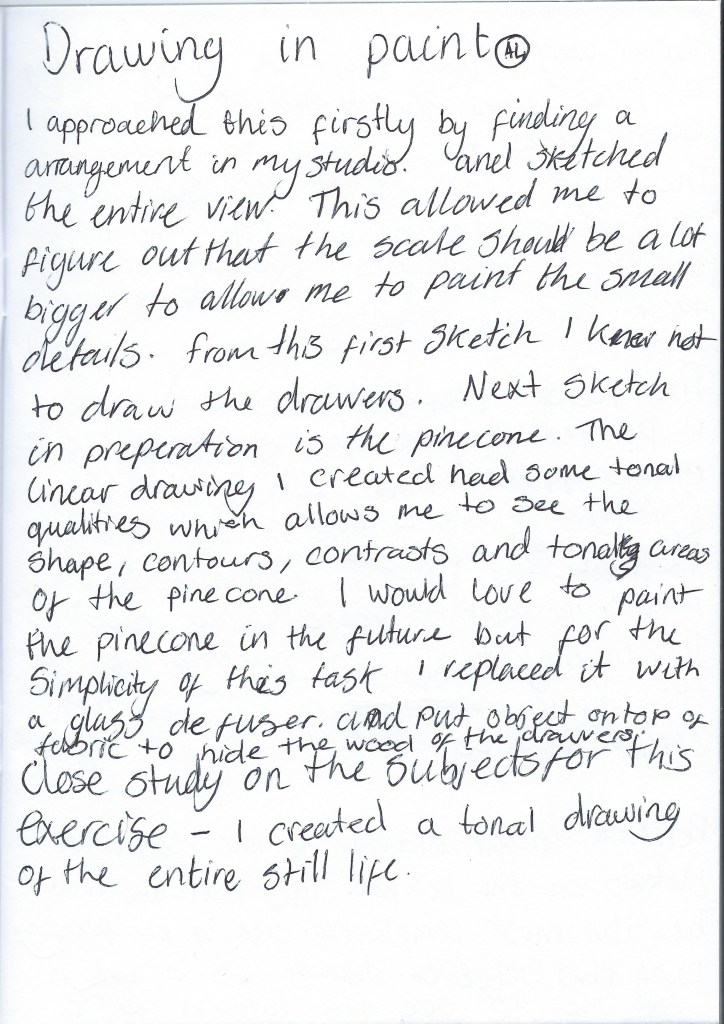 Drawing in paint AL
I approached this firstly by finding a
arrangement in my studio. and sketched
the entire view. This allowed me to
figure out that the scale should be a lot
bigger to allow me to paint the small
details. from this first sketch I knew not
to draw the drawers. Next sketch
in preperation is the pinecone. The
linear drawing I created had some tonal
qualities which allows me to see the
shape, contours, contrasts and tonal areas
of the pinecone. I would love to paint
the pinecone in the future but for the
simplicity of this task I replaced it with
a glass defuser. and put object ontop of
fabric to hide the wood of the drawers.
Close study on the subjects for this
exercise - I created a tonal drawing
of the entire still life.